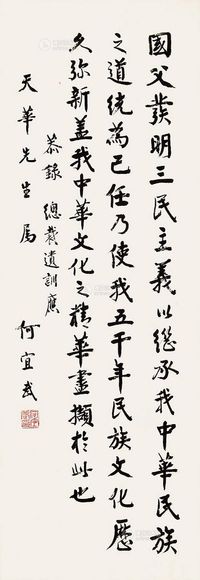 國父發明三民主義以繼承我中華民族
之道統為己任乃使我五千年民族文化歷
久弥新蓋我中華文化之精華盡擷於此也
恭錄 總裁遺訓應
天華先生屬
何宜武